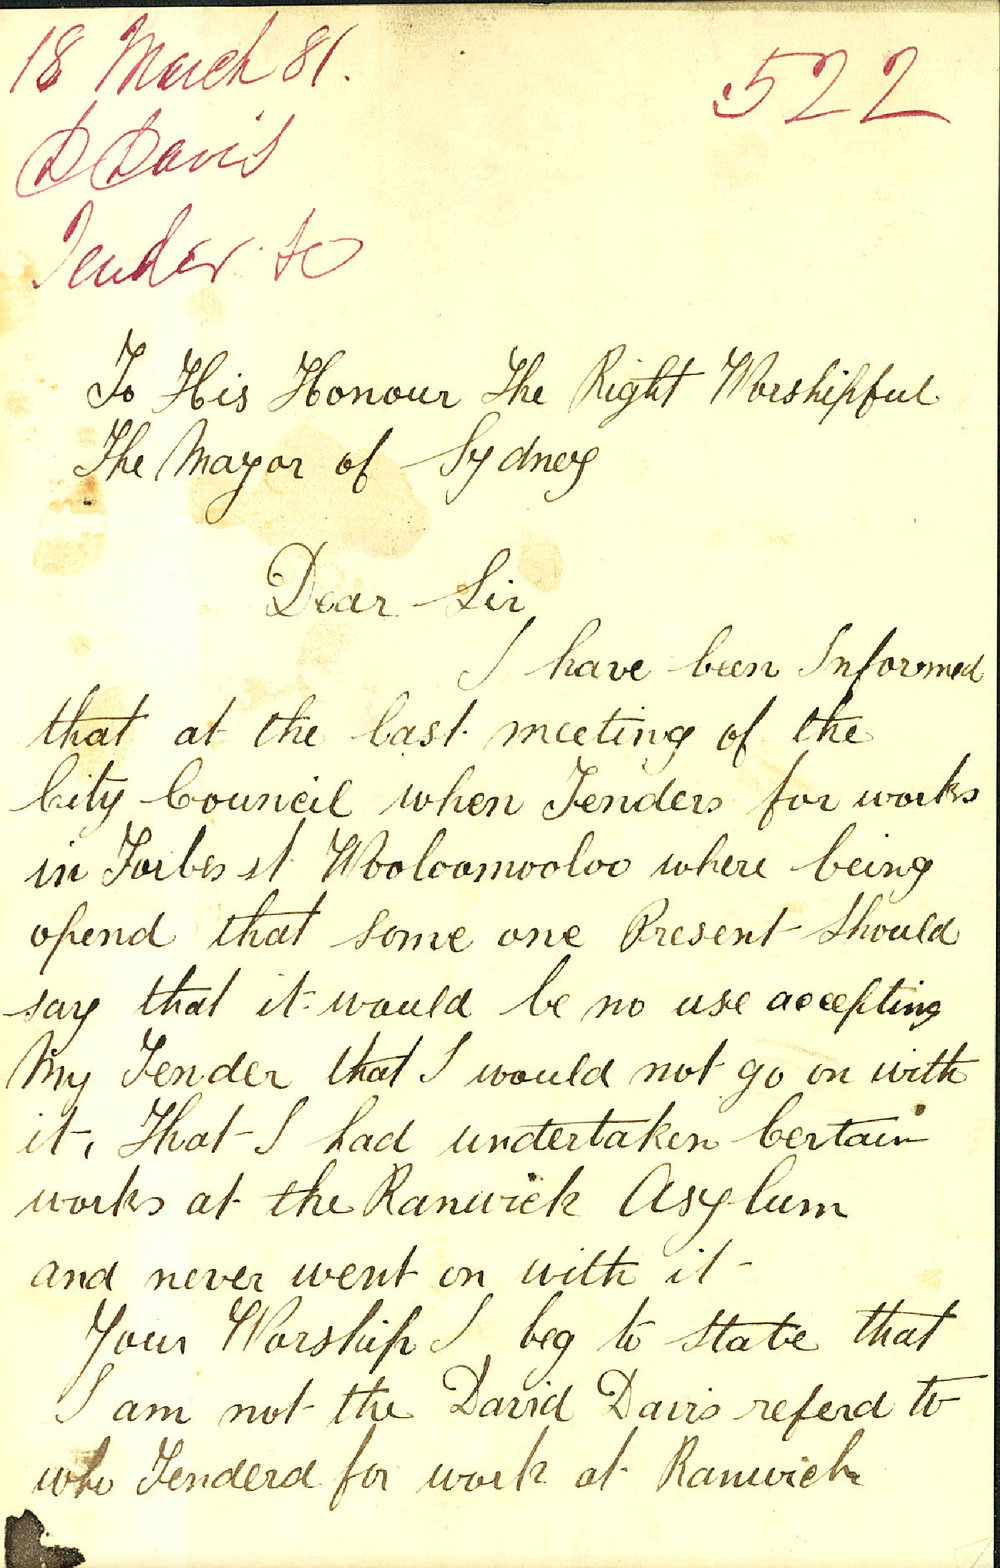 18 March 81.
522
D Davis
Tender &c
To His Honour The Right Worshipful
The Mayor of Sydney
Dear Sir
I have been Informed
that at the last meeting of the
City Council when Tenders for works
in Forbes st Wooloomooloo where being
opend that some one Present Should
say that it would be no use accepting
My Tender that I would not go on with
it, That I had undertaken Certain
works at the Ranwick Asylum
and never went on with it
Your Worship I beg to State that
I am not the David Davis referd to
who Tenderd for work at Ranwick